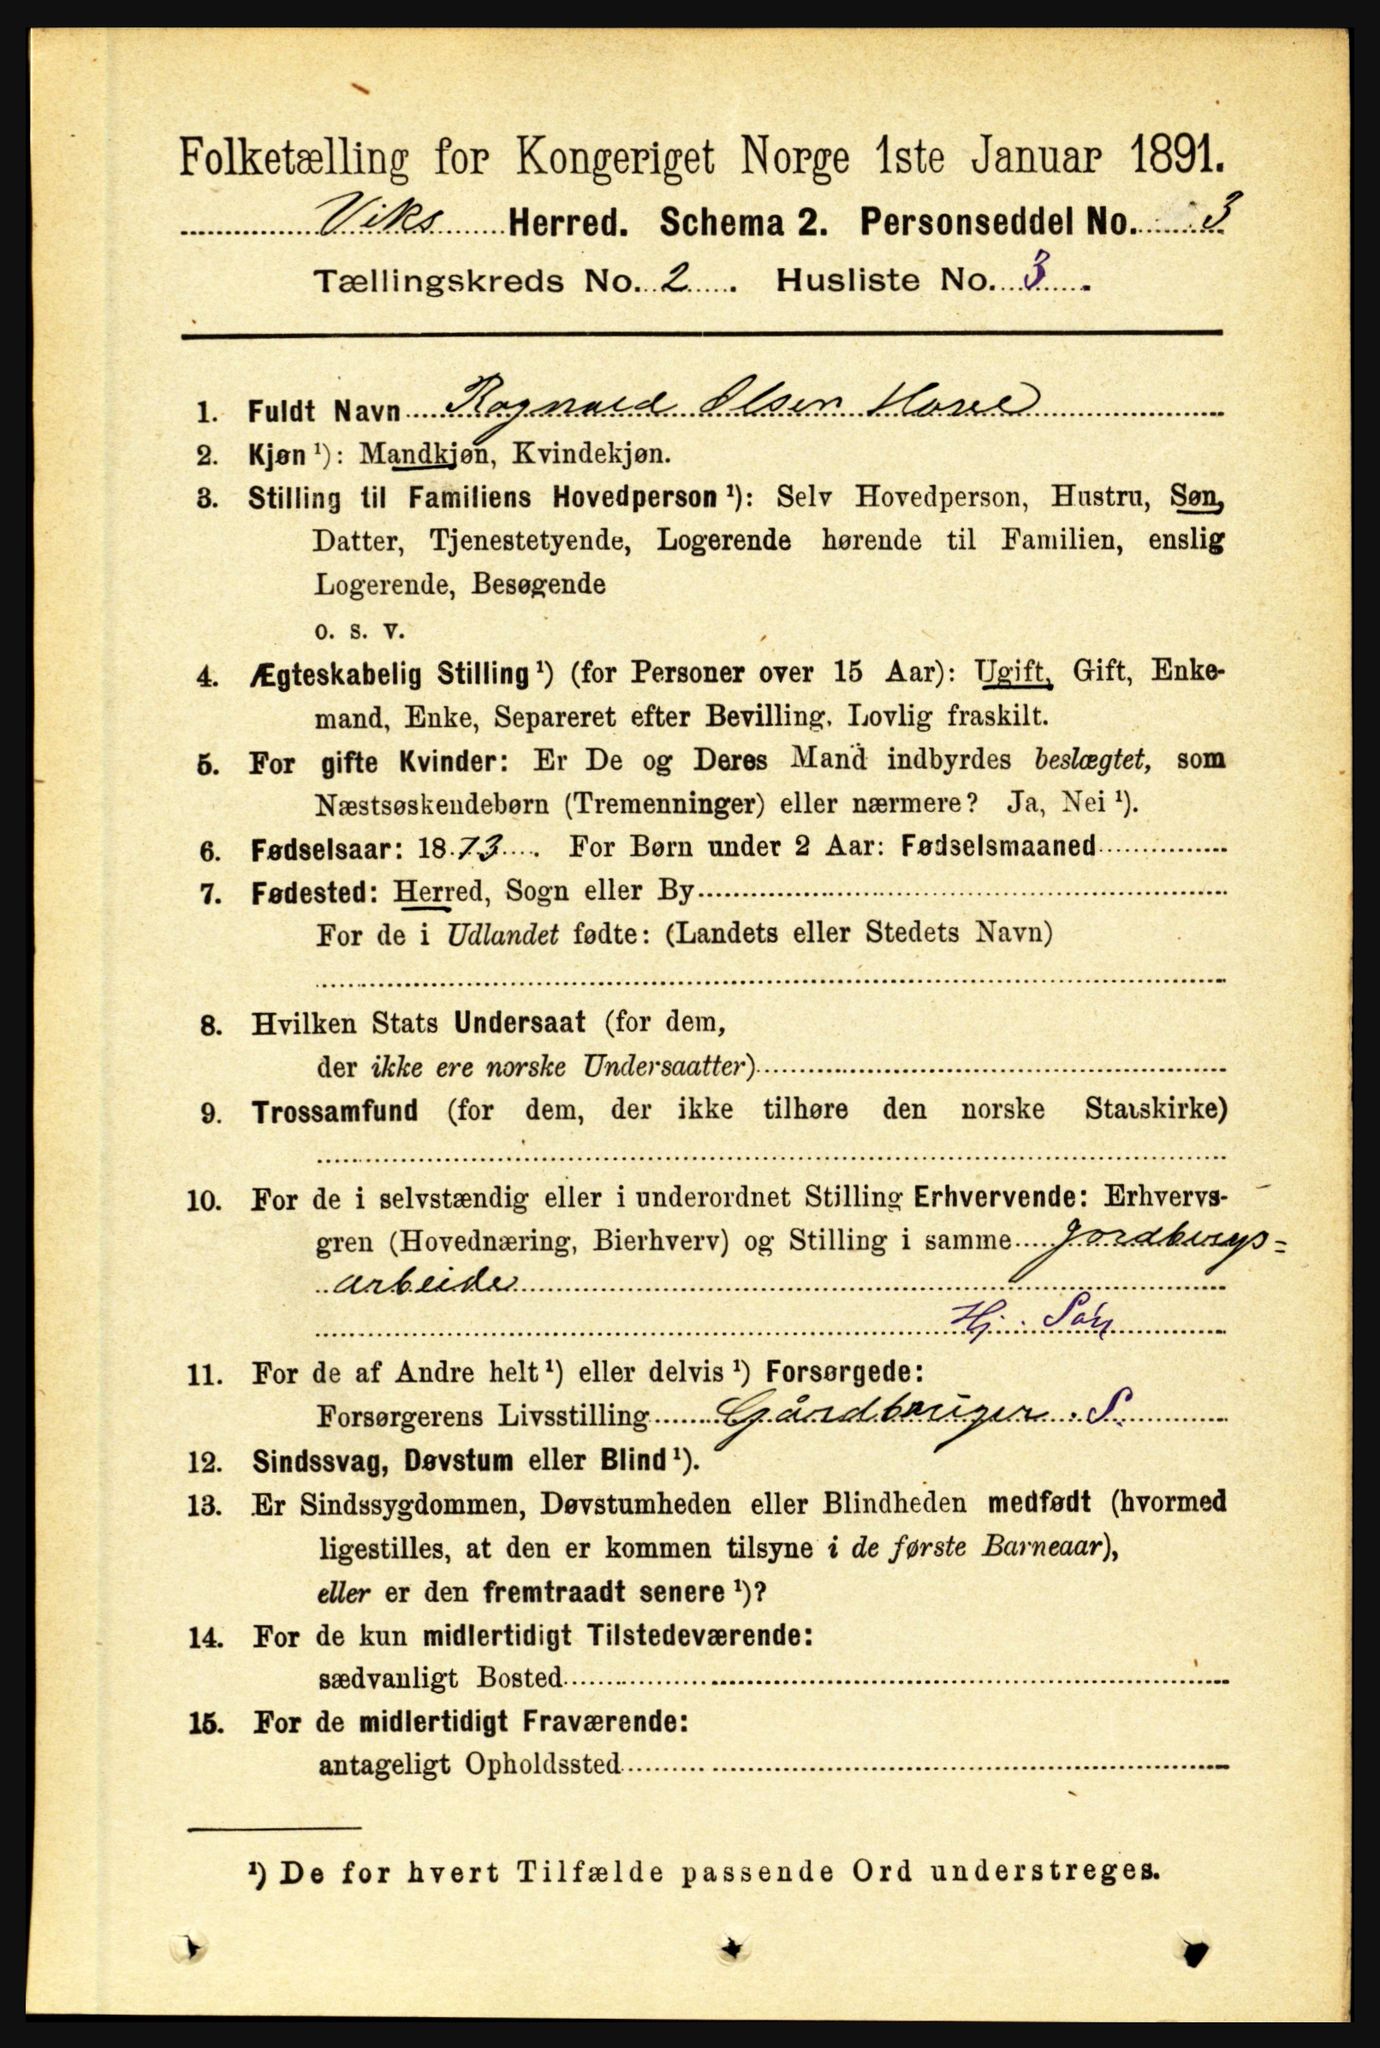 Folketælling for Kongeriget Norge 1ste Januar 1891.
Viks Herred. Schema 2. Personseddel No. 3
Tællingskreds No. 2. Husliste No. 3.
1. Fuldt Navn Ragnald Olsen Hove
2. Kjøn ¹): Mandkjøn, Kvindekjøn.
3. Stilling til Familiens Hovedperson ¹): Selv Hovedperson, Hustru, Søn,
Datter, Tjenestetyende, Logerende hørende til Familien, enslig
Logerende, Besøgende
o. s. v.
4. Ægteskabelig Stilling ¹) (for Personer over 15 Aar): Ugift, Gift, Enke-
mand, Enke, Separeret efter Bevilling. Lovlig fraskilt.
5. For gifte Kvinder: Er De og Deres Mand indbyrdes beslægtet, som
Næstsøskendebørn (Tremenninger) eller nærmere? Ja, Nei ¹).
6. Fødselsaar: 1873. For Børn under 2 Aar: Fødselsmaaned
7. Fødested: Herred, Sogn eller By
For de i Udlandet fødte: (Landets eller Stedets Navn)
8. Hvilken Stats Undersaat (for dem,
der ikke ere norske Undersaatter)
9. Trossamfund (for dem, der ikke tilhøre den norske Statskirke)
10. For de i selvstændig eller i underordnet Stilling Erhvervende: Erhvervs-
gren (Hovednæring, Bierhverv) og Stilling i samme Jordbrugs-
arbeide
Hj. Søn
11. For de af Andre helt ¹) eller delvis ¹) Forsørgede:
Forsørgerens Livsstilling Gårdbruger. S.
12. Sindssvag, Døvstum eller Blind ¹).
13. Er Sindssygdommen, Døvstumheden eller Blindheden medfødt (hvormed
ligestilles, at den er kommen tilsyne i de første Barneaar),
eller er den fremtraadt senere ¹)?
14. For de kun midlertidigt Tilstedeværende:
sædvanligt Bosted
15. For de midlertidigt Fraværende:
antageligt Opholdssted
¹) De for hvert Tilfælde passende Ord understreges.